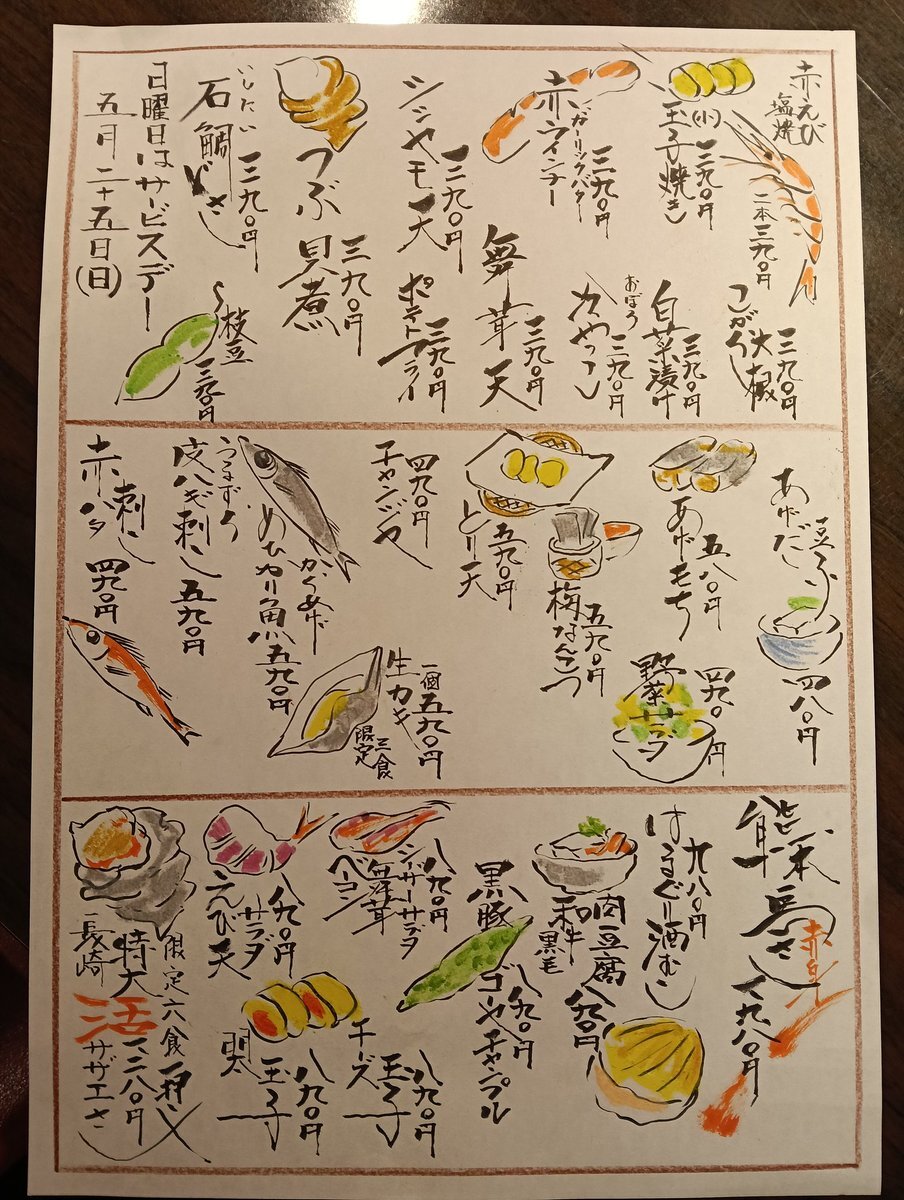 赤えび
塩焼
二本三九〇円
こがらし大根
三九〇円
(小)
玉子焼き
三九〇円
白菜漬け
三九〇円
ガーリックバター
赤ウインナー
三九〇円
おぼろ
冷やっこ
三九〇円
舞茸天
三九〇円
シシャモ天
三九〇円
ポテトフライ
三九〇円
つぶ貝煮
三九〇円
いしだい
石鯛さし
三九〇円
枝豆
三九〇円
日曜日はサービスデー
五月二十五日(日)
あげだし
豆ふ
四八〇円
あげもち
五八〇円
野菜サラダ
四九〇円
梅なんこつ
五九〇円
とり天
五九〇円
チャンジャ
四九〇円
生カキ
一個五九〇円
三食
限定
からあげ
めひかり魚
五九〇円
皮ハギ刺し
五九〇円
赤ハタ
刺し
四九〇円
熊本馬さし
赤身
一九八〇円
はまぐり酒むし
九八〇円
肉豆腐
和牛
黒毛
八九〇円
黒豚
ゴーヤチャンプル
八九〇円
シーザーサラダ
舞茸
ベーコン
八九〇円
チーズ
玉子
八九〇円
えび天
サラダ
八九〇円
明太
玉子
八九〇円
限定六食
特大
長崎
活
サザエさし
一二八〇円